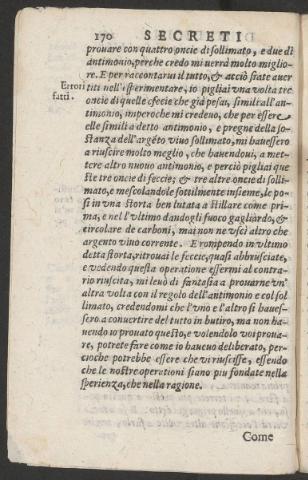 170 SECRETI D
prouare con quattro oncie di sollimato, e due di
antimonio, perche credo mi uerrà molto miglio-
re. E per raccontarui il tutto, & acciò siate auer
Errori titi nell'esperimentare, io pigliai una volta tre
fatti. oncie di quelle cfecie che già pesai, simili all'an-
timonio, imperoche mi credeuo, che per essere
elle simili a detto antimonio, e pregne della so-
stanza dell'argẽto viuo sollimato, mi hauessero
a riuscire molto meglio, che hauendoui, a met-
tere altro nuouo antimonio, e perciò pigliai que
ste tre oncie di feccie, & tre altre oncie di solli-
mato, e mescolandole sottilmente insieme, le po-
si in vna storta ben lutata a stillare come pri-
ma, e nel l'ultimo dandogli fuoco gagliardo, &
circolare de carboni, mai non ne vscì altro che
argento viuo corrente. E rompendo in vltimo
detta storta, ritrouai le feccie, quasi abbrusciate,
e vedendo questa operatione essermi al contra-
rio riuscita, mi leuò di fantasia a prouarne vn'
altra volta con il regolo dell'antimonio e col sol
limato, credendomi che l'vno e l'altro si haues-
sero a conuertire del tutto in butiro, ma non ha-
uendo io prouato questo, e volendolo voi proua-
re, potrete fare come io haueuo deliberato, per-
cioche potrebbe essere che vi riuscisse, essendo
che le nostre operationi siano piu fondate nella
sperienza, che nella ragione.
Come